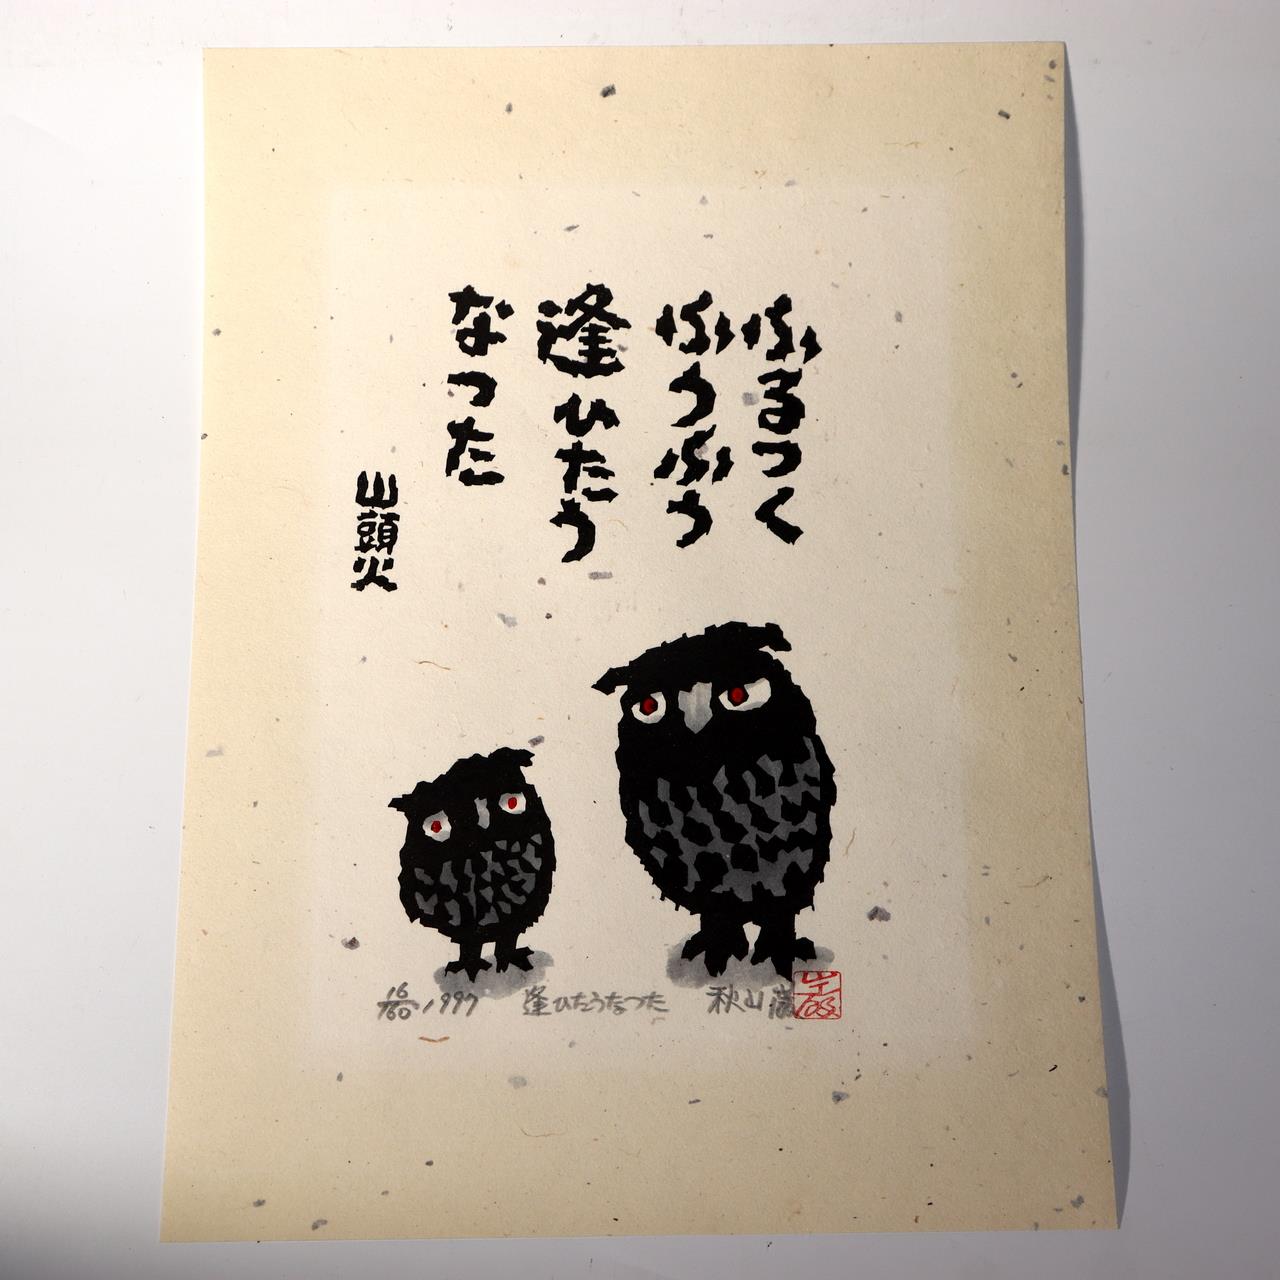 ふるつく
ふうふう
逢ひたう
なつた
山頭火
16/60 1997 逢ひたうなつた 秋山巌